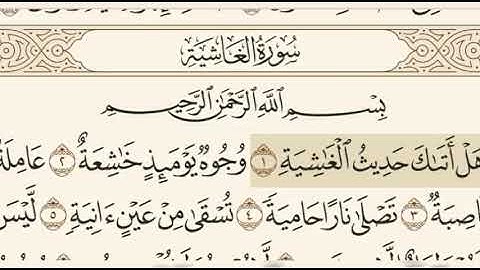 سُورَةُ الْغَاشِيَةِ
بِسْمِ اللَّهِ الرَّحْمَٰنِ الرَّحِيمِ
هَلْ أَتَىٰكَ حَدِيثُ الْغَٰشِيَةِ ١ وُجُوهٌ يَوْمَئِذٍ خَٰشِعَةٌ ٢ عَامِلَةٌ
نَّاصِبَةٌ ٣ تَصْلَىٰ نَارًا حَامِيَةً ٤ تُسْقَىٰ مِنْ عَيْنٍ ءَانِيَةٍ ٥ لَّيْسَ